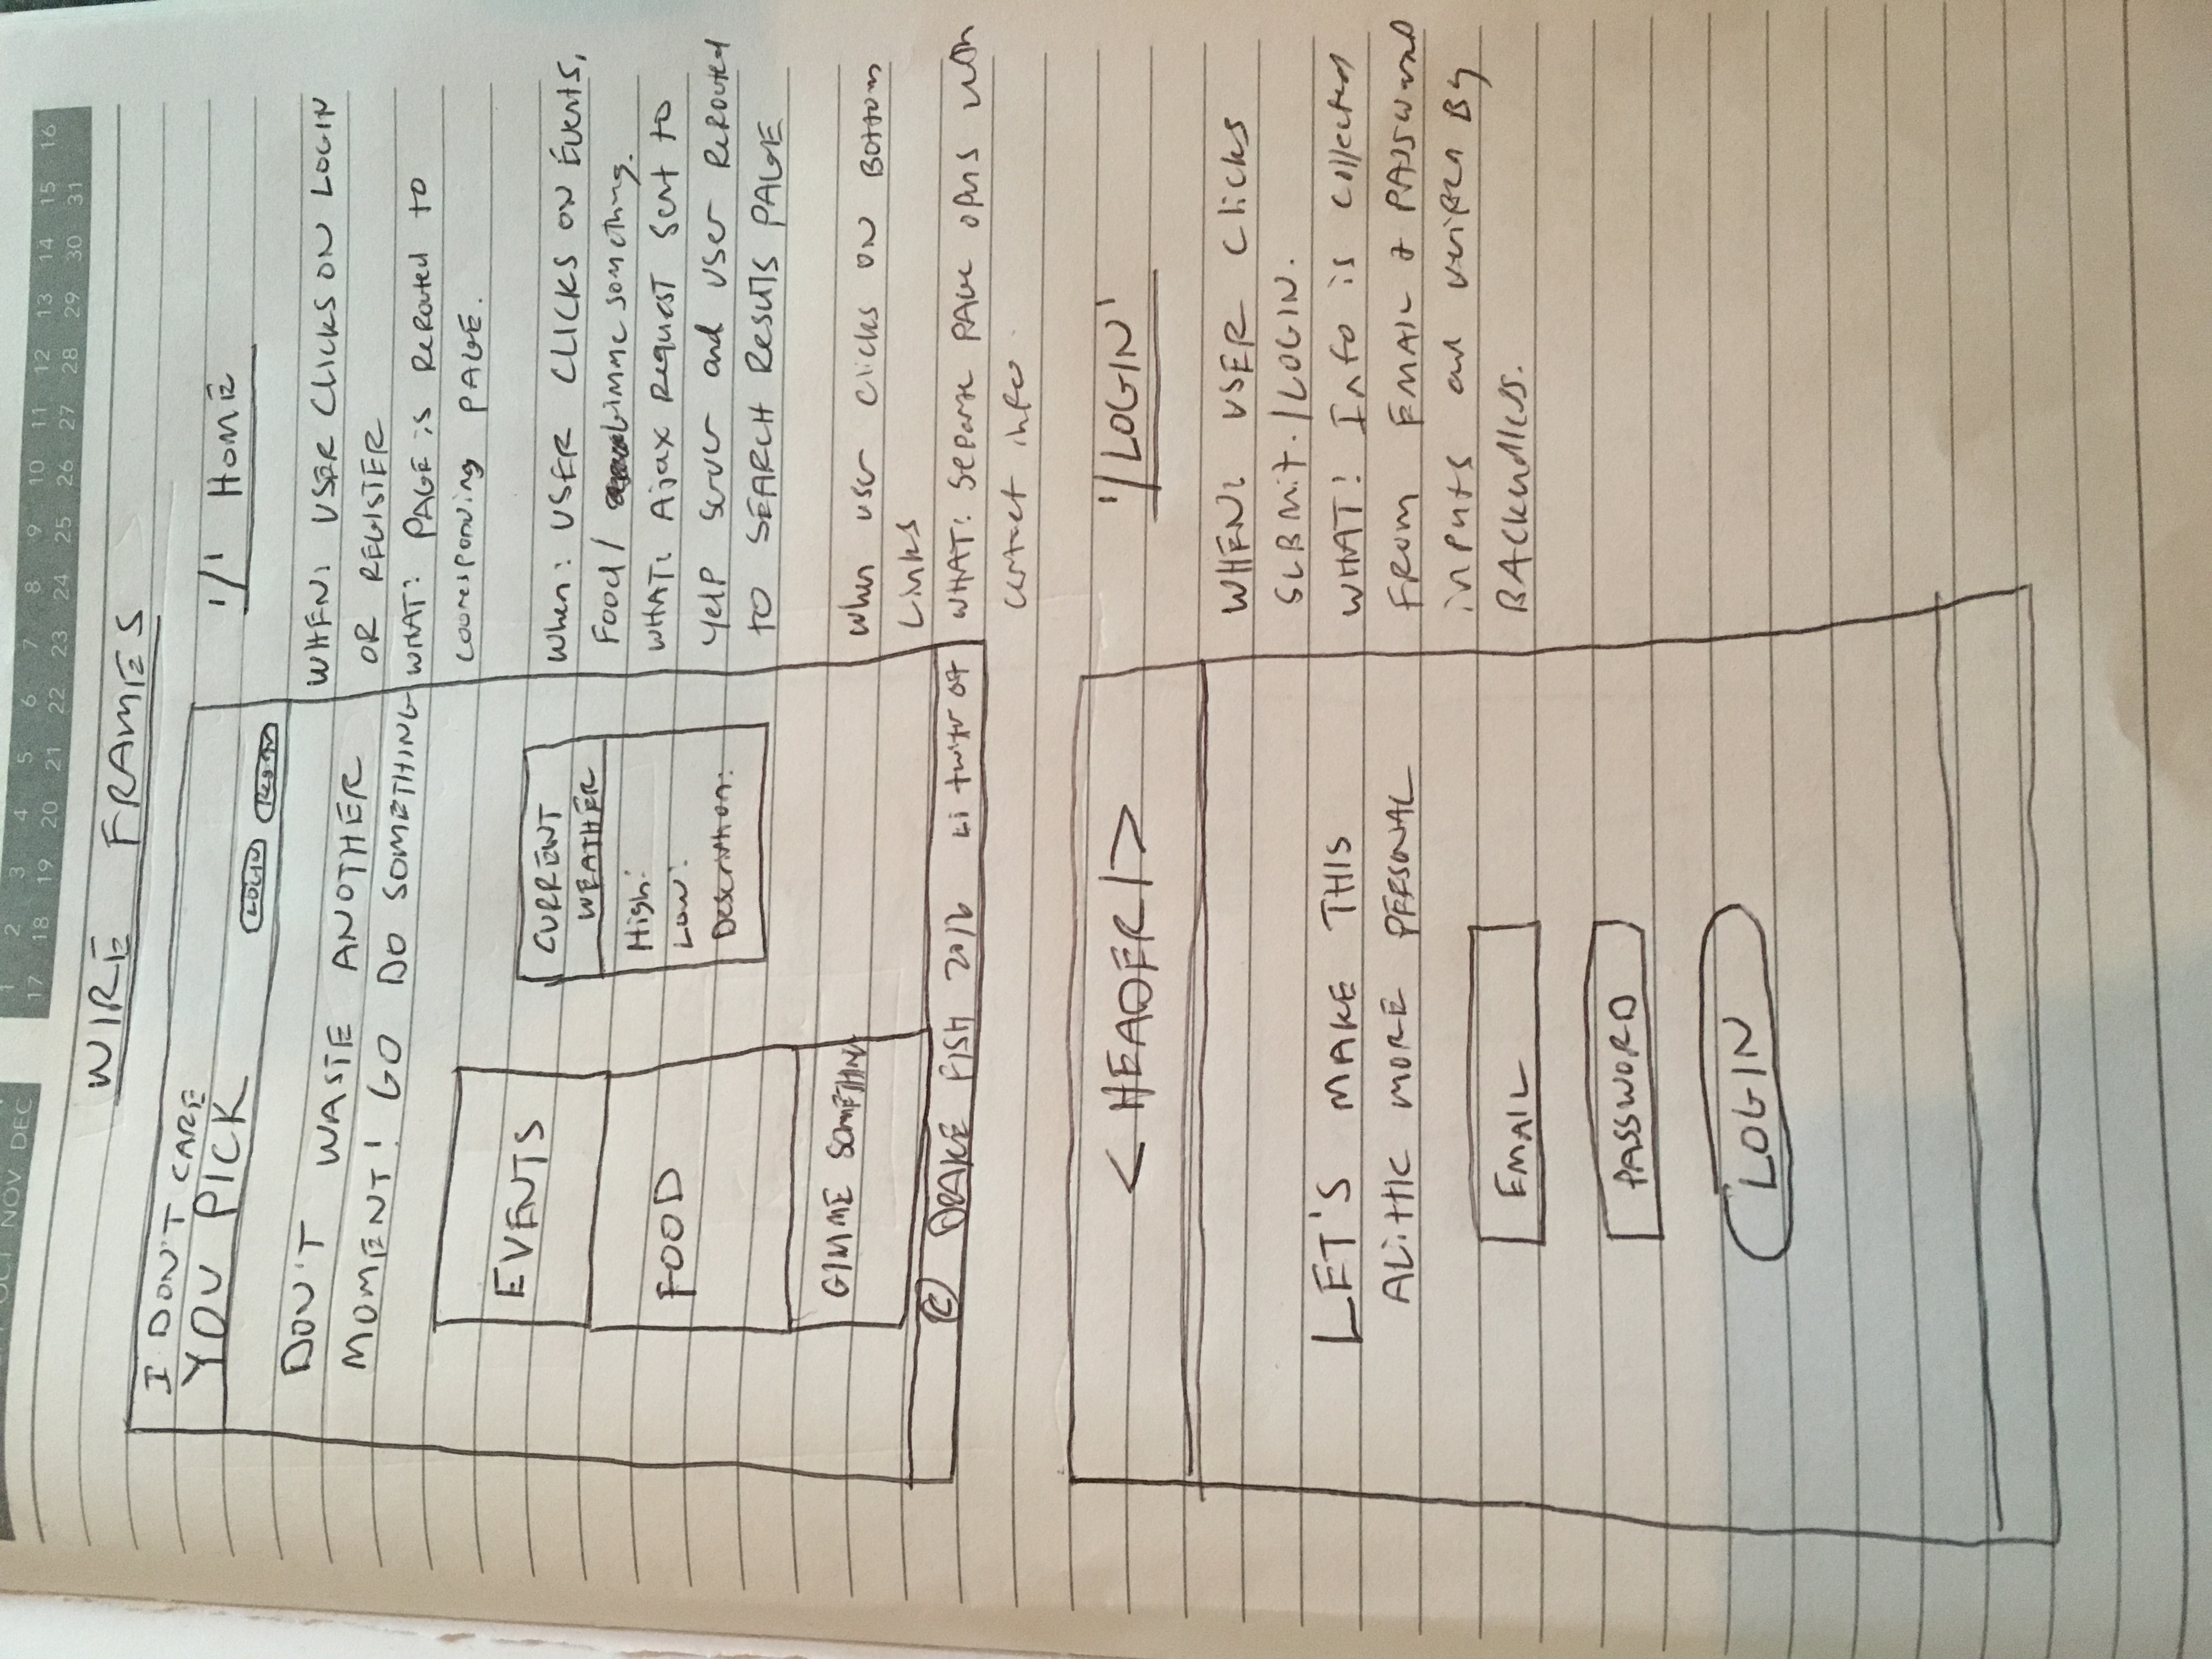 OCT NOV DEC
1 2 3 4 5 6 7 8 9 10 11 12 13 14 15 16
17 18 19 20 21 22 23 24 25 26 27 28 29 30 31
WIRE FRAMES
I DON'T CARE
YOU PICK
LOGIN
DON'T WASTE ANOTHER
MOMENT! GO DO SOMETHING
EVENTS
FOOD
GIMME SOMETHING
CURRENT
WEATHER
High:
Low:
Description:
© DRAKE FISH 2016 Li twitr GT
'/' HOME
WHEN: USER CLICKS ON LOGIN
OR REGISTER
WHAT: PAGE is ReRouted to
cooresponding PAGE.
When: USER CLICKS ON Events,
Food / Gimme something.
WHAT: Ajax Request Sent to
Yelp server and user ReRouted
to SEARCH Results PAGE
When user clicks on Bottom
Links
WHAT: Separate PAGE opens with
contact info
< HEADER/>
LET'S MAKE THIS
ALittle MORE PERSONAL
EMAIL
PASSWORD
LOGIN
'/LOGIN'
WHEN: USER Clicks
SUBMit. /LOGIN.
WHAT: Info is collected
FROM EMAIL & PASSWORD
inputs and verified By
BACKendless.